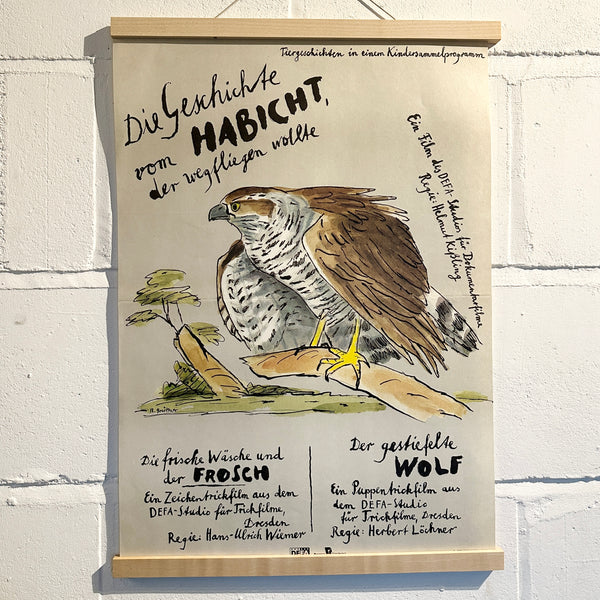 Tiergeschichten in einem Kindersammelprogramm
Die Geschichte
vom HABICHT,
der wegfliegen wollte
Ein Film des DEFA-Studios für Dokumentarfilme
Regie: Helmut Kißling
Die frische Wäsche und
der FROSCH
Ein Zeichentrickfilm aus dem
DEFA-Studio für Trickfilme,
Dresden
Regie: Hans-Ulrich Wiemer
Der gestiefelte
WOLF
Ein Puppentrickfilm aus
dem DEFA-Studio
für Trickfilme, Dresden
Regie: Herbert Löchner